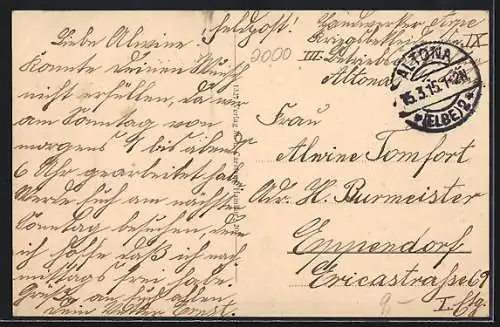 Feldpost!
Liebe Alwine!
Konnte Deinen Wunsch
nicht erfüllen, da wir
am Sonntag von
morgens 7 bis abends
6 Uhr gearbeitet haben.
Werde Euch am nächsten
Sonntag besuchen, denn
ich hoffe daß ich nach-
mittags frei habe.
Grüße an Euch allen
Dein Vetter Ernst.
2000
Landwerker
IX
III
Altona
ALTONA
15.3.15. 1-2N
*(ELBE)2*
Frau
Alwine Tomfort
Adr. H. Burmeister
Eppendorf
Ericastraße 69
I. Etg.
9,-